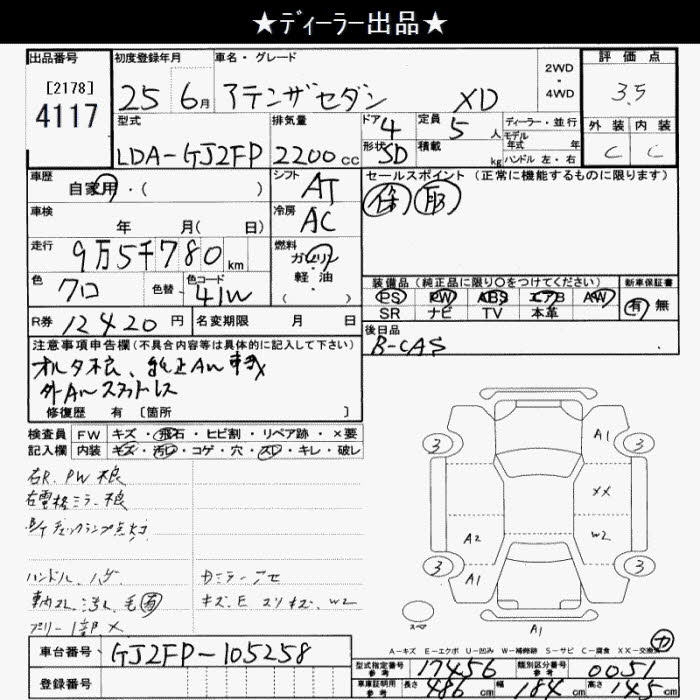 ★ディーラー出品★
出品番号
[2178]
4117
初度登録年月
25 6月
車名・グレード
アテンザセダン XD
2WD
・
4WD
評価点
3.5
型式
LDA-GJ2FP
排気量
2200cc
ドア 4
形状 SD
定員 5 人
積載 kg
ディーラー・並行
モデル年式 年
ハンドル 左・右
外装 内装
C C
車歴
自家用・( )
シフト AT
セールスポイント(正常に機能するものに限ります)
保 取
車検
年 月( 日)
冷房 AC
走行
9万5千780km
燃料
ガソリン
・
軽油
( )
色 クロ
色替
色コード 41W
装備品(純正品に限り○をつけてください)
PS PW ABS エアB AW
SR ナビ TV 本革
新車保証書
有 無
R券 12420円
名変期限 月 日
後日品
B-CAS
注意事項申告欄(不具合内容等は具体的に記入して下さい)
オルタ不良、純正AW
外AWスタットレス
修復歴 有 [箇所 ]
検査員 FW キズ・飛石・ヒビ割・リペア跡・×要
記入欄 内装 キズ・汚れ・コゲ・穴・スレ・キレ・破レ
右R.PW不良
右電格ミラー不良
チェックランプ点灯
ハンドル、ハゲ
3
A1
3
XX
A2
W2
3
A1
3
スペア
A1
A-キズ E-エクボ U-凹み W-補修跡 S-サビ C-腐食 XX-交換済
車台番号 GJ2FP-105258
登録番号
型式指定番号 参考 17456
類別区分番号 参考 0051
車庫証明用 参考 長さ 486cm 幅 184cm 高さ 145cm